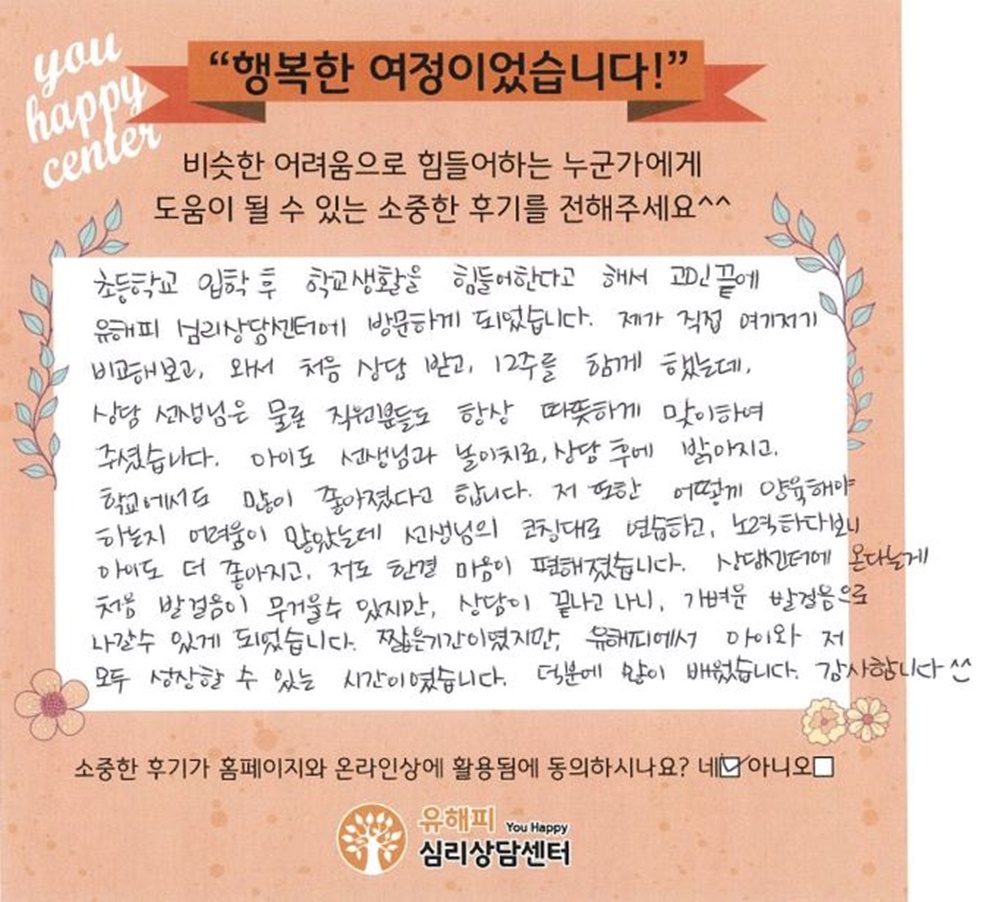 you
happy
center
“행복한 여정이었습니다!”
비슷한 어려움으로 힘들어하는 누군가에게
도움이 될 수 있는 소중한 후기를 전해주세요^^
초등학교 입학 후 학교생활을 힘들어한다고 해서 고민끝에
유해피 심리상담센터에 방문하게 되었습니다. 제가 직접 여기저기
비교해보고, 와서 처음 상담 받고, 12주를 함께 했는데,
상담 선생님은 물론 직원분들도 항상 따뜻하게 맞이하여
주셨습니다. 아이도 선생님과 놀이치료, 상담 후에 밝아지고,
학교에서도 많이 좋아졌다고 합니다. 저 또한 어떻게 양육해야
하는지 어려움이 많았는데 선생님의 코칭대로 연습하고, 노력하다보니
아이도 더 좋아지고, 저도 한결 마음이 편해졌습니다. 상담센터에 온다는게
처음 발걸음이 무거울수 있지만, 상담이 끝나고 나니, 가벼운 발걸음으로
나갈수 있게 되었습니다. 짧은기간이였지만, 유해피에서 아이와 저
모두 성장할 수 있는 시간이였습니다. 덕분에 많이 배웠습니다. 감사합니다 ^^
소중한 후기가 홈페이지와 온라인상에 활용됨에 동의하시나요? 네☑ 아니오☐
유해피 You Happy
심리상담센터